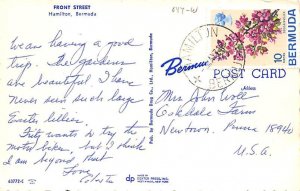 FRONT STREET
Hamilton, Bermuda
We are having a good
trip. The gardens
are beautiful. I have
never seen such large
Easter lilies.
Fritz wants to try the
motor bikes, but I think
I am beyond that.
Love,
63772-C
Pub. by Bermuda Drug Co., Ltd., Hamilton, Bermuda
dp
DEXTER PRESS, INC.
WEST NYACK, NEW YORK
647-W
HAMILTON
BERMUDA
10
BERMUDA
Bermuda
POST CARD
Address
Mrs John Wolf
Oakdale Farm
Newtown, Penna 18940
U.S.A.